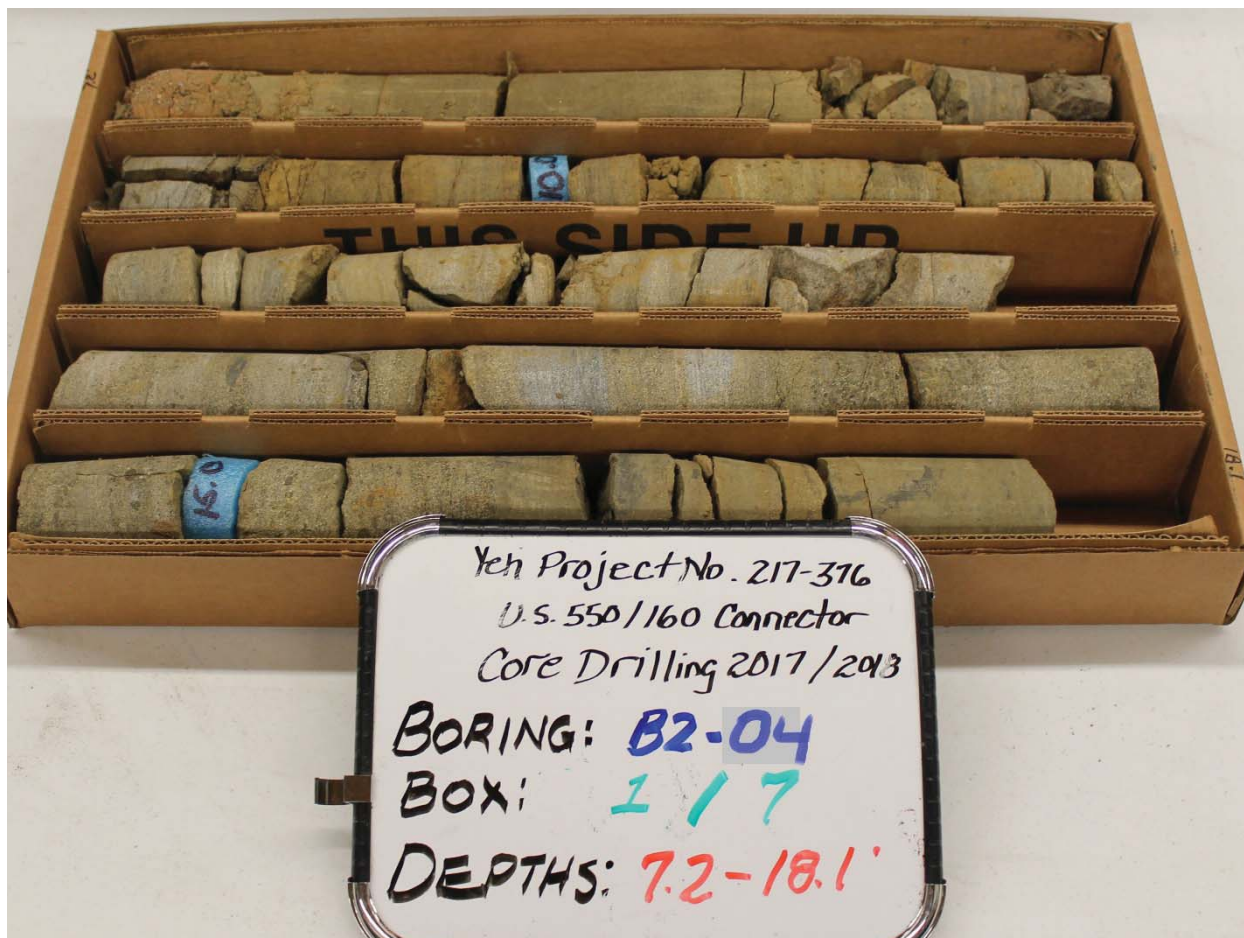 7.2
10.0
THIS SIDE UP
15.0
18.1
Yeh Project No. 217-376
U.S. 550/160 Connector
Core Drilling 2017/2018
BORING: B2-04
BOX: 1 / 7
DEPTHS: 7.2-18.1'